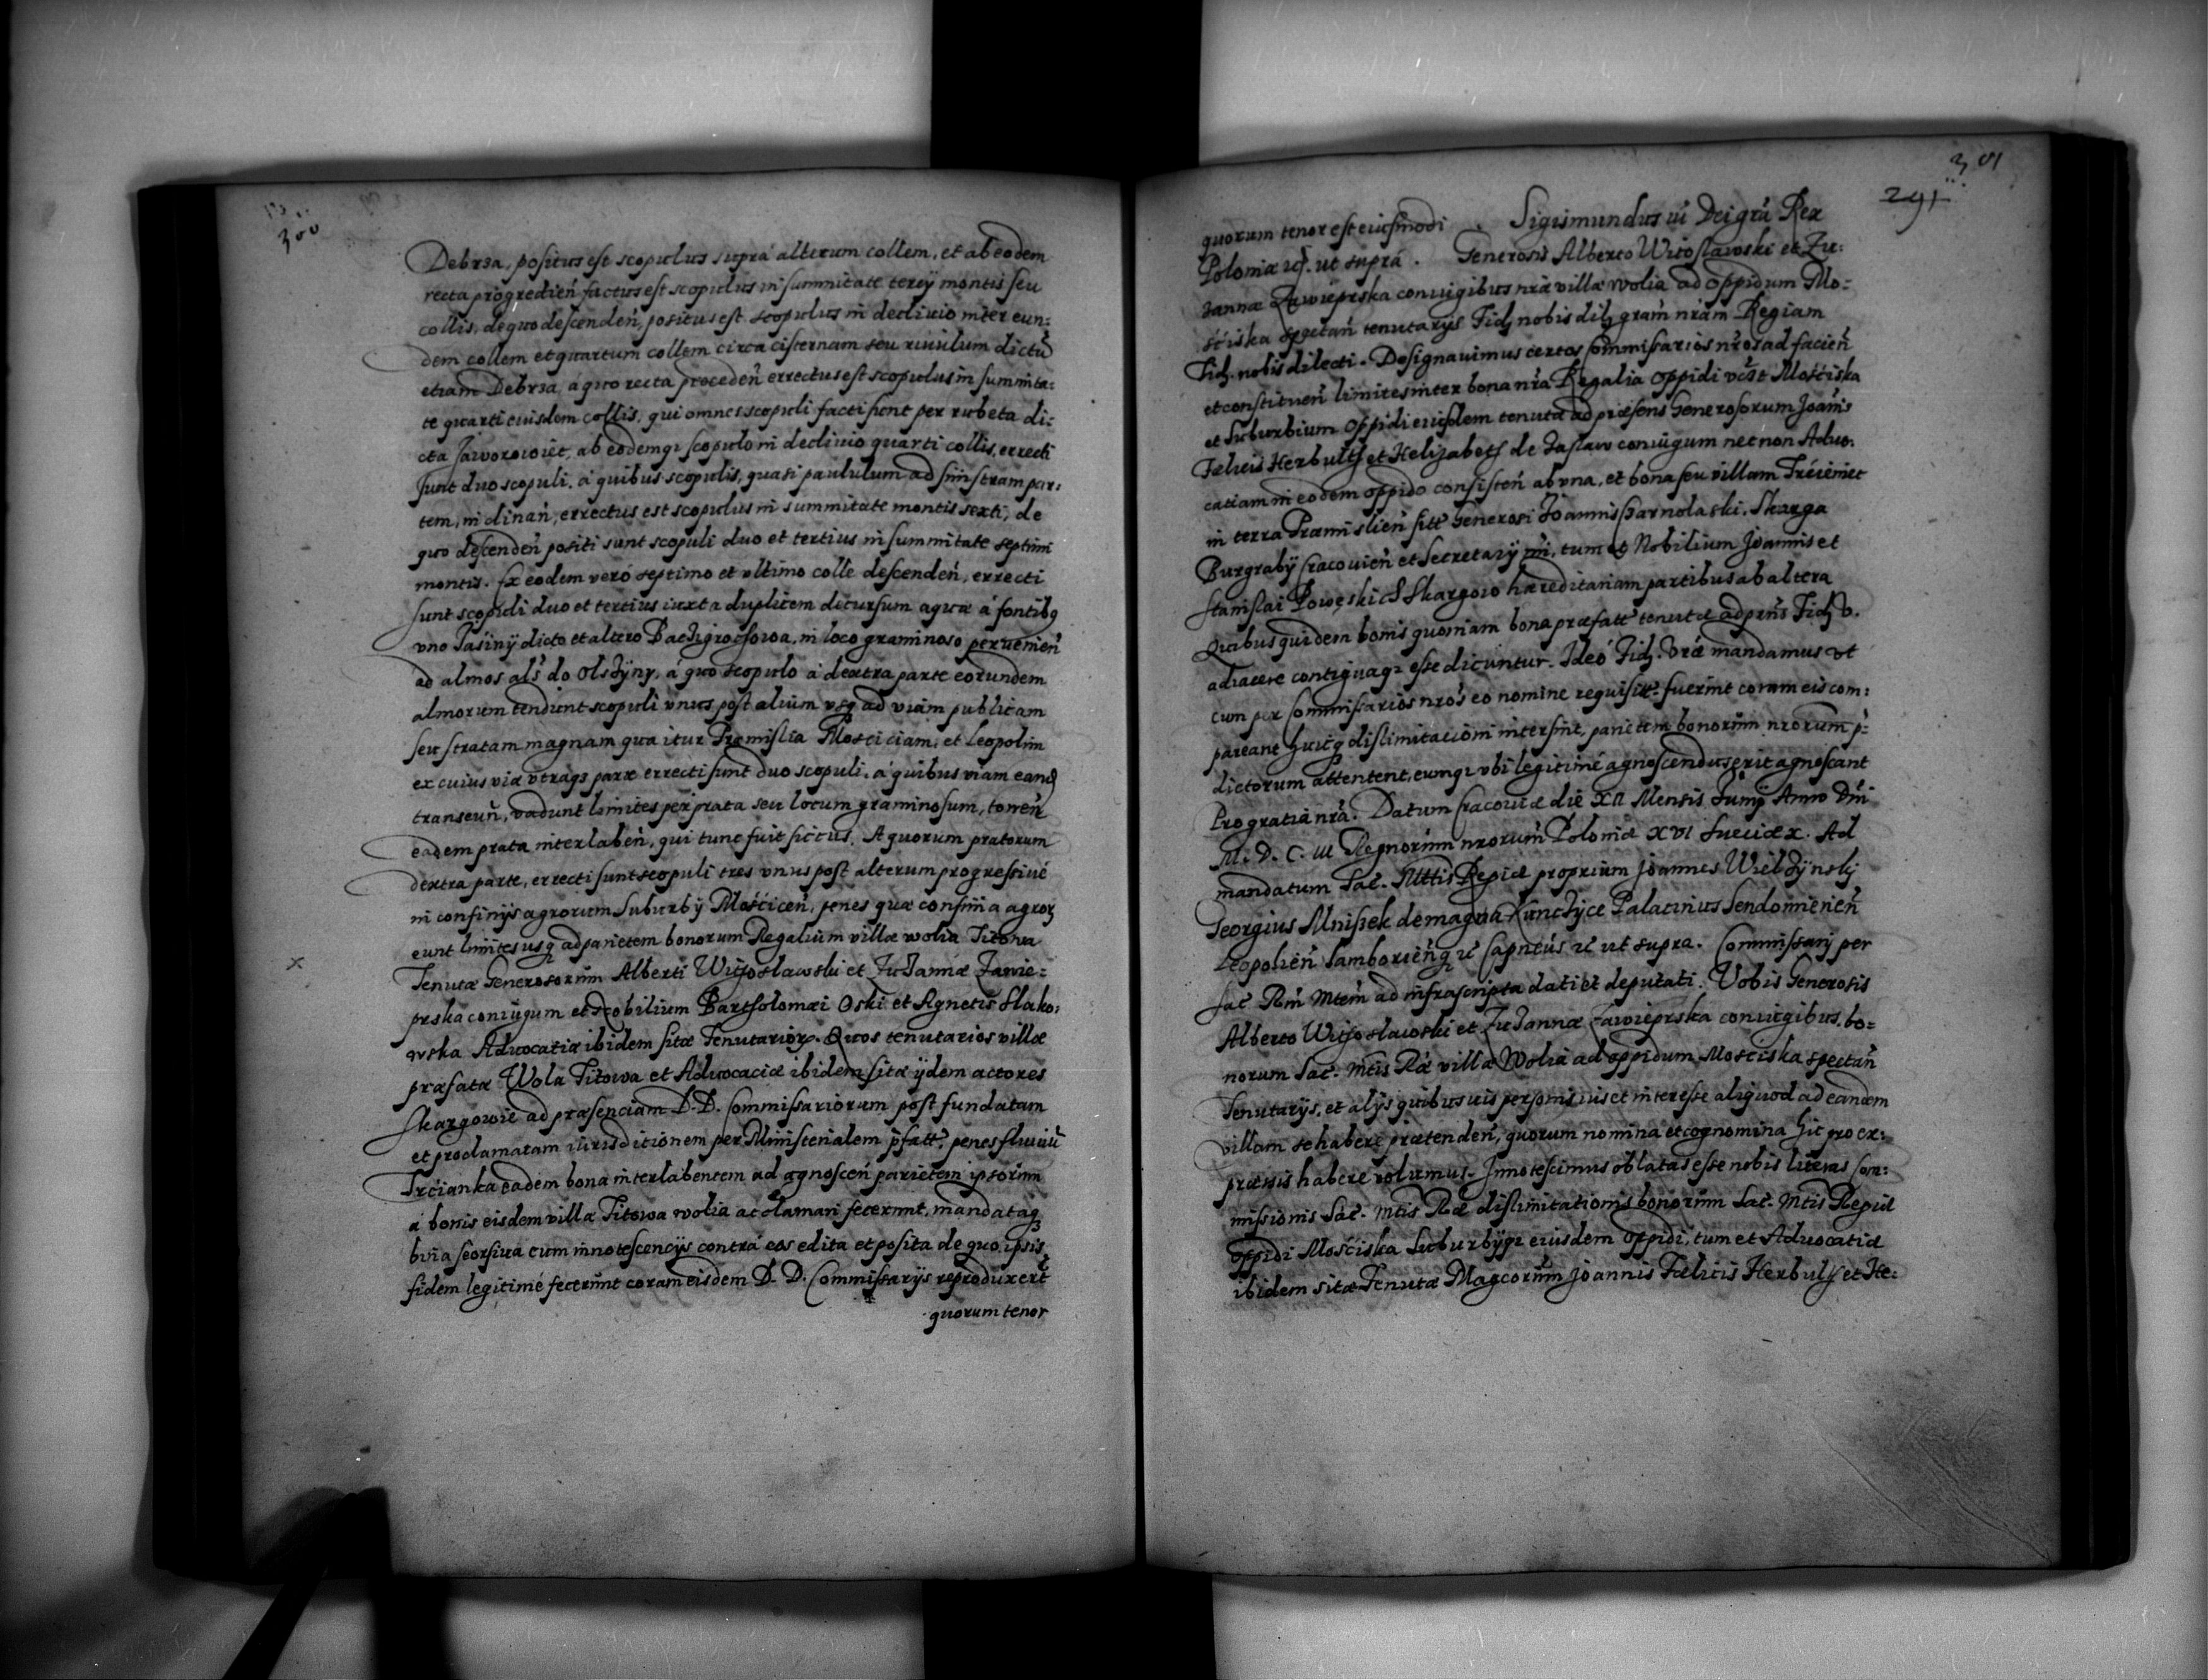 300
Debrza, positus est scopulus supra alterum collem, et ab eodem
recta progredień factus est scopulus in summitate tercÿ montis seu
collis, de quo descendeń, positus est scopulus in declivio inter eun:
dem collem et quartum collem circa cisternam seu rivulum dictū
etiam Debrza, á quo recta procedeń errectus est scopulus in summita:
te quarti eiusdem collis, qui omnes scopuli facti sunt per rubeta di:
cta Jaworowiec, ab eodemqȝ scopulo in declivio quarti collis, errecti
sunt duo scopuli. á quibus scopulis, quasi paululum ad sinistram par:
tem, inclinań, errectus est scopulus in summitate montis sexti, de
quo descendeń positi sunt scopuli duo et tertius in summitate septimi
montis. Ex eodem veró septimo et vltimo colle descendeń, errecti
sunt scopuli duo et tertius iuxta duplicem decursum aquæ á fontibȝ
vno Jasiny dicto et altero, in loco graminoso pervenień
ad almos alś do Olszyny, á quo scopulo á dextra parte eorundem
almorum tendunt scopuli vnus post alium vsqȝ ad viam publicam
seu stratam magnam qua itur Præmislia Mosticiam, et Leopolim
ex cuius viæ vtraqȝ parte errecti sunt duo scopuli. á quibus viam eand
transeuń, vadunt limites per prata seu locum graminosum,
eadem prata interlabeń, qui tunc fuit siccus. A quorum pratorum
dextra parte, errecti sunt scopuli tres vnus post alterum progressivé
in confinÿs agrorum Suburbÿ Mośćiceń, penes quæ confinia agroꝝ
eunt limites usqȝ ad parietem bonorum Regalium villæ wolia Titowa
Tenutæ Generosorum Alberti Witosławski et Zuzannæ Zawie:
prska coniugum et Nobilium Bartholomæi Oski et Agnetis Slako:
wska Advocatiæ ibidem sitæ Tenutarioꝝ. Quos tenutarios villæ
præfatæ Wola Titowa et Advocaciæ ibidem sitæ ÿdem actores
Skargowie ad præsenciam D. D. Commissariorum post fundatam
et proclamatam iurisdictionem per Ministerialem pfatt, penes fluviū
Srćianka eadem bona interlabentem ad agnosceń parietem ipsorum
á bonis eisdem villæ Titowa wolia acclamari fecerunt, mandataqȝ
bina seorsiva cum innotescencÿs contrá eos edita et posita de quo ipsis
fidem legitimé fecerunt coram eisdem D. D. Commissarÿs reproduxert
quorum tenor
301
291
quorum tenor est eiusmodi. Sigismundus iii Dei grā Rex
Poloniæ ut supra. Generosis Alberto Witosławski et Zu:
zannæ Zawieprska coniugibus nrǽ villæ wolia ad oppidum Mo:
śćiska spectań tenutarÿs Fidȝ nobis dilȝ gram nrám Regiam
Fidȝ. nobis dilecti. Designavimus certos Commissarios nros ad facień
et constitueń limites inter bona nrá Regalia oppidi Mośćiska
et Suburbium oppidi eiusdem tenutæ ad præsens Generosorum Joānis
Fælicis Herbulth et Helizabeth de Zasław coniugum nec non Advo:
catiam in eodem oppido consisteń ab vna, et bona seu villam
in terra Præmislień sitt Generosi Joannis Skarga
Burgrabÿ Cracovień et Secretarÿ, tum et Nobilium Joannis et
Stanislai Powęski Skargow hæreditariam partibus ab altera
Quibus quidem bonis quoniam bona præfatt tenutæ ad pńs Fidȝ v.
adiacere contiguaqȝ esse dicuntur. Ideó Fidȝ. vræ mandamus vt
cum per Commissarios nros eo nomine requisitt. fuerint coram eis com:
pareant huicqȝ dislimitacioni intersint, parietem bonorum nrorum p:
dictorum attentent, eumqȝ vbi legitimé agnoscendus erit agnoscant
Pro gratia nrá. Datum Cracoviæ die XII Mensis Junÿ Anno Dni
M. D. C. iii Regnorum nrorum Poloniæ XVI Sueciæ x. Ad
mandatum Sac. Mttis Regiæ proprium Joannes Wielżynski
Georgius Mnißek de magna Kunczyce Palatinus Sendomirień
Leopolień Samborieńqȝ Capneus ut supra. Commissarÿ per
Sac Rm Mtem ad infrascripta dati et deputati. Vobis Generosis
Alberto Witosławski et Zuzannæ Zawieprska coniugibus, bo:
norum Sac. Mtis Ræ villæ Wolia ad oppidum Mosciska spectań
Tenutarÿs, et alÿs quibusvis personis ius et interesse aliquod ad eandem
villam se habere prætendeń, quorum nomina et cognomina hic pro ex:
pressis habere volumus. Innotescimus oblatas esse nobis literas Com:
missionis Sac. Mtis Ræ dislimitationis bonorum Sac. Mtis Regiæ
oppidi Mośćiska Suburbÿqȝ eiusdem oppidi, tum et Advocatiæ
ibidem sitæ Tenutæ Magcorum Joannis Fælicis Herbulth et He: